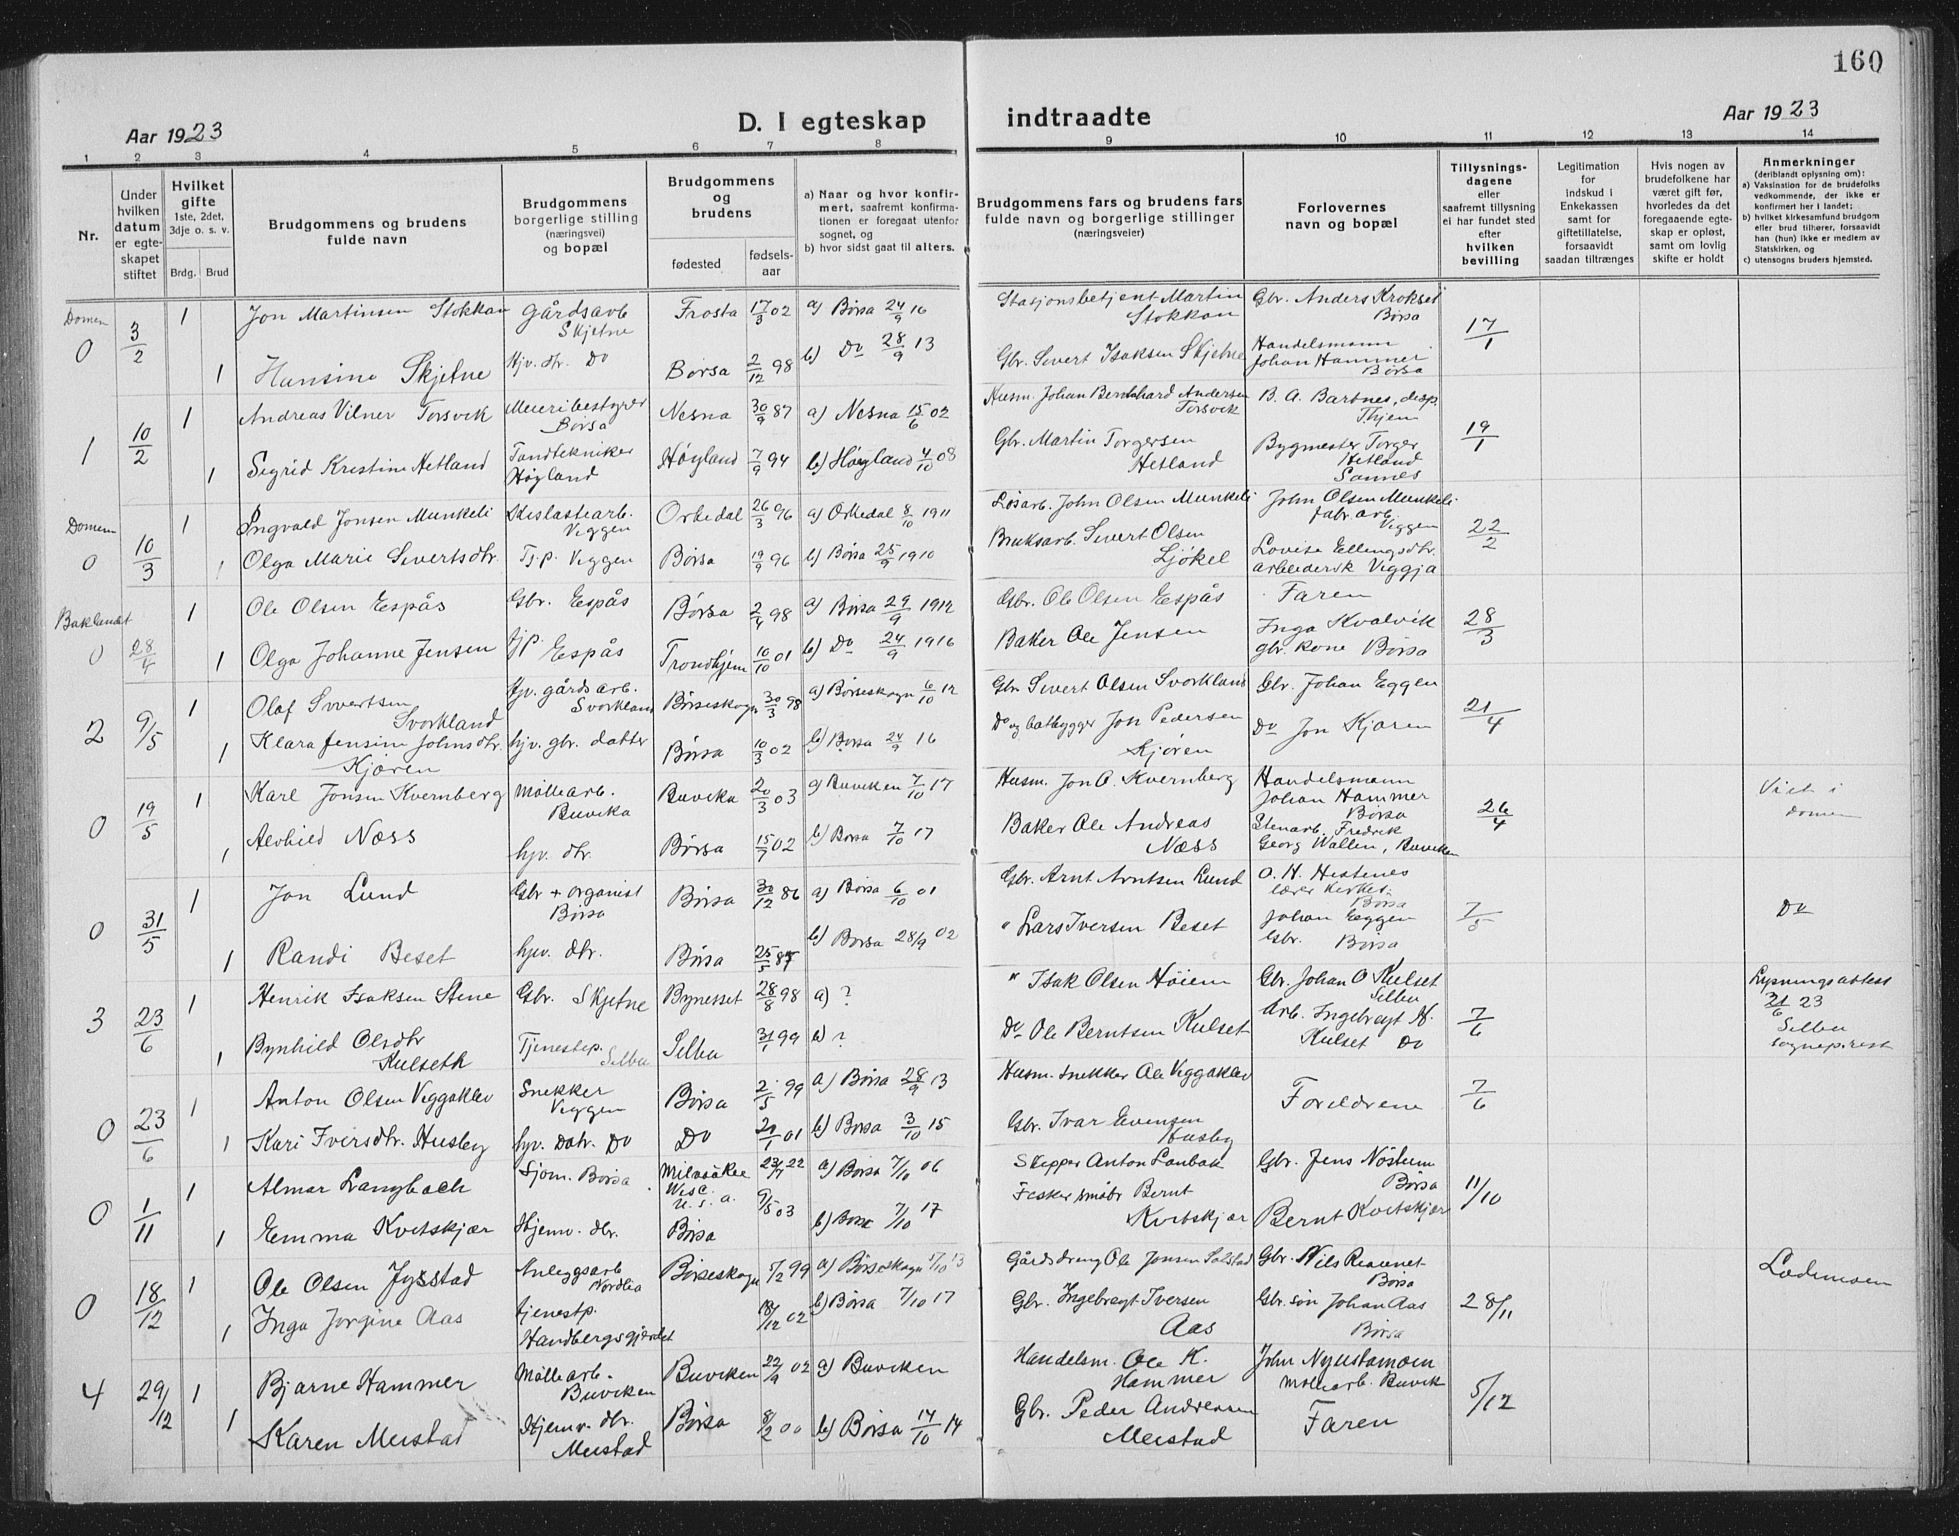 160
Aar 1923
D. I egteskap indtraadte
Aar 1923
1 2 3 4 5 6 7 8 9 10 11 12 13 14
Nr.
Under hvilken datum er egteskapet stiftet
Hvilket gifte
1ste, 2det, 3dje o. s. v.
Brdg. Brud
Brudgommens og brudens fulde navn
Brudgommens borgerlige stilling (næringsvei) og bopæl
Brudgommens og brudens
fødested
fødselsaar
a) Naar og hvor konfirmert, saafremt konfirmationen er foregaat utenfor sognet, og
b) hvor sidst gaat til alters.
Brudgommens fars og brudens fars fulde navn og borgerlige stillinger (næringsveier)
Forlovernes navn og bopæl
Tillysningsdagene eller saafremt tillysning ei har fundet sted efter hvilken bevilling
Legitimation for indskud i Enkekassen samt for giftetillatelse, forsaavidt saadan tiltrænges
Hvis nogen av brudefolkene har været gift før, hvorledes da det foregaaende egteskap er opløst, samt om lovlig skifte er holdt
Anmerkninger
(deriblandt oplysning om):
a) Vaksination for de brudefolks vedkommende, der ikke er konfirmert her i landet;
b) hvilket kirkesamfund brudgom eller brud tilhører, forsaavidt han (hun) ikke er medlem av Statskirken, og
c) utensogns bruders hjemsted.
Domen 0 3/2 1 Jon Martinsen Stokkan gårdsarb Skjetne Frosta 17/3 02 a) Børsa 24/9 16 Stasjonsbetjent Martin Stokkan Gbr. Anders Krokset Børsa 17/1
1 Hansine Skjetne Hjv. dtr. Do Børsa 2/12 98 b) Do 28/9 13 Gbr. Sivert Isaksen Skjetne Handelsmann Johan Hammer Børsa
1 10/2 1 Andreas Vilner Torsvik Meieribestyrer Børsa Nesna 30/9 87 a) Nesna 15/6 02 Husm. Johan Bernhhard Andersen Torsvik B. A. Bartnes, disp. Thjem 19/1
1 Sigrid Kristine Hetland Tandtekniker Høgland Høyland 7/9 94 b) Høyland 4/10 08 Gbr. Martin Torgersen Hetland Bygmester Torger Hetland Sannes
Domen 0 10/3 1 Ingvald Jonsen Munkeli Skislastearb. Viggen Orkedal 26/3 96 a) Orkedal 8/10 1911 Løsarb. John Olsen Munkeli John Olsen Munkeli fabr. arb. Viggen 22/2
1 Olga Marie Sivertsdtr. Tj.p. Viggen Børsa 19/9 96 b) Børsa 25/9 1910 Bruksarb. Sivert Olsen Ljøkel Lovise Ellingsdtr. arbeidersk Viggja
Baklandet 0 28/4 1 Ole Olsen Espås Gbr. Espås Børsa 2/4 98 a) Børsa 29/9 1912 Gbr. Ole Olsen Espås Faren 28/3
1 Olga Johanne Jensen tjp. Espås Trondhjem 10/10 01 b) Do 24/9 1916 Baker Ole Jensen Inga Kvalvik gbr. kone Børsa
2 9/5 1 Olaf Sivertsen Svorkland hjv. gårdsarb. Svorkland Børseskogn 30/3 98 a) Børseskogn 6/10 12 Gbr Sivert Olsen Svorkland Gbr. Johan Eggen 21/4
1 Klara Jensine Johnsdtr. Kjøren hjv. gbr. datter Børsa 10/3 02 b) Børsa 24/9 16 Do og båtbygger Jon Pedersen Kjøren Do Jon Kjøren
0 19/5 1 Karl Jonsen Kvernberg Møllearb. Buvika Buvika 20/3 03 a) Buviken 7/10 17 Husm. Jon O. Kvernberg Handelsmann Johan Hammer Børsa 26/4 Viet i domen
1 Alvhild Næss hjv. dtr. Børsa 15/7 02 b) Børsa 7/10 17 Baker Ole Andreas Næss Stenarb. Fredrik Georg Wallen, Buviken
0 31/5 1 Jon Lund Gbr + organist Børsa Børsa 30/12 86 a) Børsa 6/10 01 Gbr. Arnt Arntsen Lund O. H. Hestenes lærer kirkes. Børsa 7/5 Do
1 Randi Beset hjv. dtr. Børsa 25/5 87 b) Børsa 28/9 02 " Lars Iversen Beset Johan Eggen Gbr. Børsa
3 23/6 1 Henrik Isaksen Stene Gbr. Skjetne Bynesset 28/8 98 a) ? " Isak Olsen Høiem Gbr. Johan O Kulset Selbu 7/6 Lysningsattest 21/6 23 Selbu sogneprest
1 Bynhild Olsdtr Kulseth Tjenestep. Selbu Selbu 31/1 99 b) ? Do Ole Berntsen Kulset Arb. Ingebregt N. Kulset Do
0 23/6 1 Anton Olsen Viggaklev Snekker Viggen Børsa 2/5 99 a) Børsa 28/9 13 Husm. snekker Ole Viggaklev Foreldrene 7/6
1 Kari Iversdtr. Husby hjv. Datr. Do Do 20/1 01 b) Børsa 3/10 15 Gbr. Ivar Evensen Husby
0 1/11 1 Almar Langbach Sjøm. Børsa Milwåkee Wisc. U. S. a. 23/7 22 a) Børsa 7/10 06 Skipper Anton Lanbak Gbr. Jens Nøstum Børsa 11/10
1 Emma Kvitskjær Hjemv. dtr. Børsa 9/5 03 b) Børse 7/10 17 Fisker småbr Bernt Kvitskjær Bernt Kvitskjær
0 18/12 1 Ole Olsen Jysstad Anleggsarb Nordlia Børseskogn 7/2 99 a) Børseskogn 17/10 13 Gårdsdreng Ole Jonsen Solstad Gbr. Nils Ravnnet Børsa 28/11 Lademoen
1 Inga Jorgine Aas tjenestp. Handbergsgjærdet 18/12 02 b) Børsa 7/10 17 Gbr. Ingebregt Iversen Aas Gbr. søn Johan Aas Børsa
4 29/12 1 Bjarne Hammer Møllearb. Buviken Buviken 22/9 02 a) Buviken Handelsm. Ole K. Hammer John Nyustamoen møllearb. Buvik 5/12
1 Karen Meistad Hjemv. dtr. Meistad Børsa 8/2 00 b) Børsa 14/10 14 Gbr. Peder Andreassen Meistad Faren